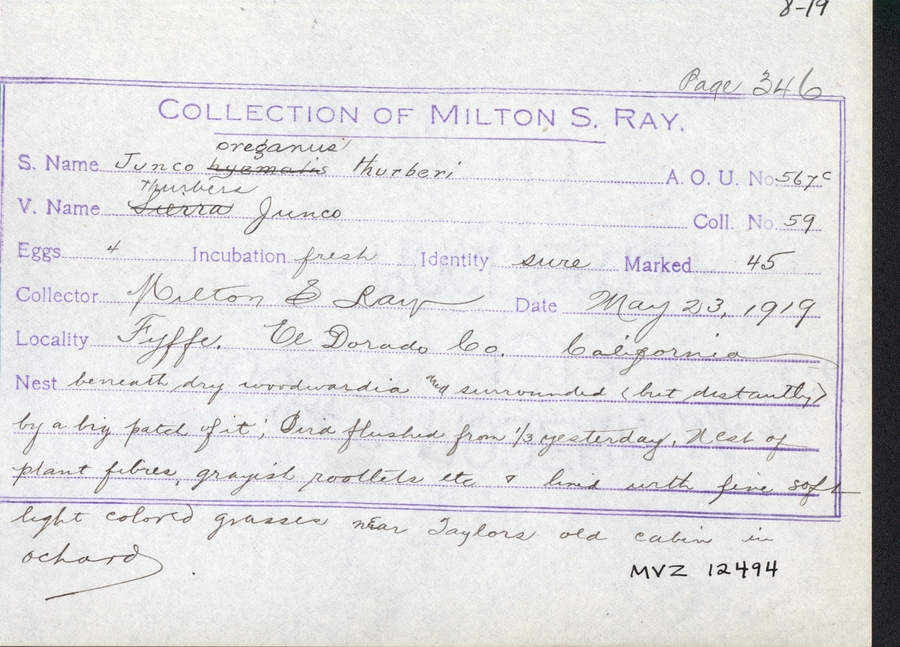 8-19
Page 346
COLLECTION OF MILTON S. RAY.
oreganus
S. Name Junco hyemalis thurberi A. O. U. No. 567c
Thurbers
V. Name Sierra Junco Coll. No. 59
Eggs 4 Incubation fresh Identity sure Marked 45
Collector Milton S Ray Date May 23, 1919
Locality Fyffe. El Dorado Co. California
Nest beneath dry woodwardia and surrounded (but distantly)
by a big patch of it; Bird flushed from 1/3 yesterday. Nest of
plant fibres, grayish rootlets etc & lined with fine soft
light colored grasses near Taylors old cabin in
ochard.
MVZ 12494